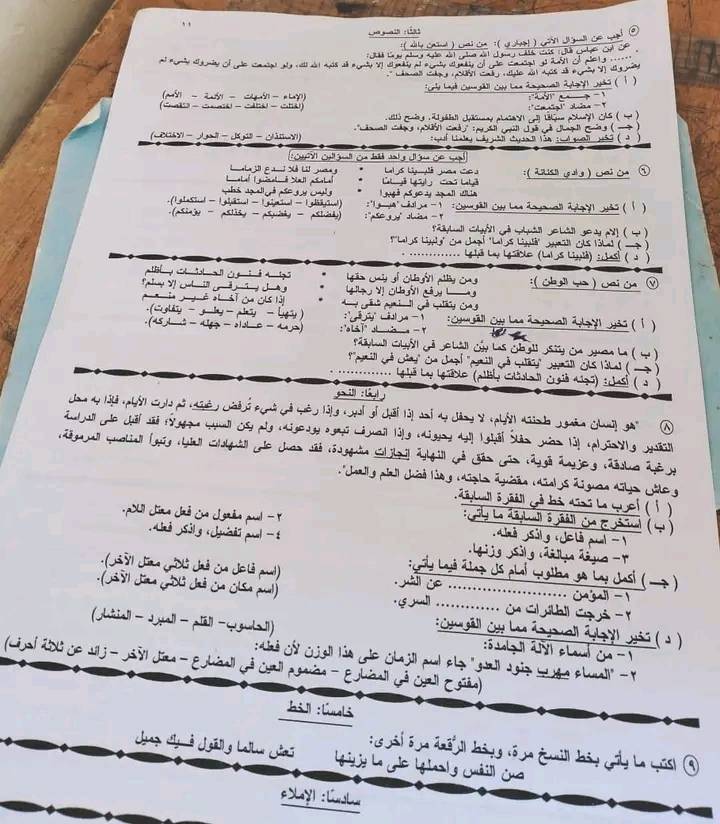 ١١
ثالثًا: النصوص
⑤ أجب عن السؤال الآتي ( إجباري ): من نص ( استعن بالله ):
عن ابن عباس قال: كنت خلف رسول الله صلى الله عليه وسلم يومًا فقال:
"...... واعلم أن الأمة لو اجتمعت على أن ينفعوك بشيء لم ينفعوك إلا بشيء قد كتبه الله لك، ولو اجتمعت على أن يضروك بشيء لم
يضروك إلا بشيء قد كتبه الله عليك، رفعت الأقلام، وجفت الصحف".
( أ ) تخير الإجابة الصحيحة مما بين القوسين فيما يلي:
١- جـــمع "الأمة": (الإماء – الأمهات – الأئمة – الأمم)
٢- مضاد "اجتمعت": (اختلت – اختلفت – اختصمت – انتقصت)
( ب ) كان الإسلام سبّاقًا إلى الاهتمام بمستقبل الطفولة. وضح ذلك.
( جـ ) وضح الجمال في قول النبي الكريم: "رفعت الأقلام، وجفت الصحف".
( د ) تخير الصواب: هذا الحديث الشريف يعلمنا أدب: (الاستئذان – التوكل – الحوار – الاختلاف)
أجب عن سؤال واحد فقط من السؤالين الآتيين:
⑥ من نص ( وادي الكنانة ): دعت مصر فلبينا كراما • ومصر لنا فلا نـــدع الزمامـــا
قياما تحت رايتها قيـــامًا • أمامكم العلا فـــامضوا أمامـــا
هناك المجد يدعوكم فهبوا • وليس يروعكم في المجد خطب
( أ ) تخير الإجابة الصحيحة مما بين القوسين: ١- مرادف "هبـــوا": (استيقظوا – استعينوا – استقبلوا – استكملوا).
٢- مضاد "يروعكم": (يفضلكم – يغضبكم – يخذلكم – يؤمنكم).
( ب ) إلام يدعو الشاعر الشباب في الأبيات السابقة؟
( جـ ) لماذا كان التعبير "فلبينا كراما" أجمل من "ولبينا كراما"؟
( د ) أكمل: (فلبينا كراما) علاقتها بما قبلها ............
⑦ من نص ( حب الوطن ): ومن يظلم الأوطان أو ينس حقها • تجئـــه فنـــون الحادثـــات بـــأظلم
ومـــا يرفع الأوطان إلا رجالها • وهـــل يتـــرقى النـــاس إلا بسلم؟
ومن يتقلب في النعيم شقى بـــه • إذا كان من آخـــاه غيـــر منعـــم
( أ ) تخير الإجابة الصحيحة مما بين القوسين: ١- مرادف "يترقى": ( يتهيأ – يتعلم – يعلـــو – يتفاوت).
٢- مـــضـــاد "آخاه": (حرمه – عـــاداه – جهله – شـــاركه).
( ب ) ما مصير من يتنكر للوطن كما بيّن الشاعر في الأبيات السابقة؟
( جـ ) لماذا كان التعبير "يتقلب في النعيم" أجمل من "يعش في النعيم"؟
( د ) أكمل: (تجئه فنون الحادثات بأظلم) علاقتها بما قبلها ............
رابعًا: النحو
⑧ "هو إنسان مغمور طحنته الأيام، لا يحفل به أحد إذا أقبل أو أدبر، وإذا رغب في شيء تُرفض رغبته، ثم دارت الأيام، فإذا به محل
التقدير والاحترام، إذا حضر حفلاً أقبلوا إليه يحيونه، وإذا انصرف تبعوه يودعونه، ولم يكن السبب مجهولاً؛ فقد أقبل على الدراسة
برغبة صادقة، وعزيمة قوية، حتى حقق في النهاية إنجازات مشهودة، فقد حصل على الشهادات العليا، وتبوأ المناصب المرموقة،
وعاش حياته مصونة كرامته، مقضية حاجته، وهذا فضل العلم والعمل".
( أ ) أعرب ما تحته خط في الفقرة السابقة.
( ب ) استخرج من الفقرة السابقة ما يأتي:
١- اسم فاعل، واذكر فعله. ٢- اسم مفعول من فعل معتل اللام.
٣- صيغة مبالغة، واذكر وزنها. ٤- اسم تفضيل، واذكر فعله.
( جـ ) أكمل بما هو مطلوب أمام كل جملة فيما يأتي:
١- المؤمن ............ عن الشر. (اسم فاعل من فعل ثلاثي معتل الآخر).
٢- خرجت الطائرات من ............ السري. (اسم مكان من فعل ثلاثي معتل الآخر).
( د ) تخير الإجابة الصحيحة مما بين القوسين:
١- من أسماء الآلة الجامدة: (الحاسوب– القلم – المبرد – المنشار)
٢- "المساء مهرب جنود العدو" جاء اسم الزمان على هذا الوزن لأن فعله:
(مفتوح العين في المضارع – مضموم العين في المضارع – معتل الآخر – زائد عن ثلاثة أحرف)
خامسًا: الخط
⑨ اكتب ما يأتي بخط النسخ مرة، وبخط الرُّقعة مرة أخرى:
صن النفس واحملها على ما يزينها تعش سالما والقول فـــيك جميل
سادسًا: الإملاء